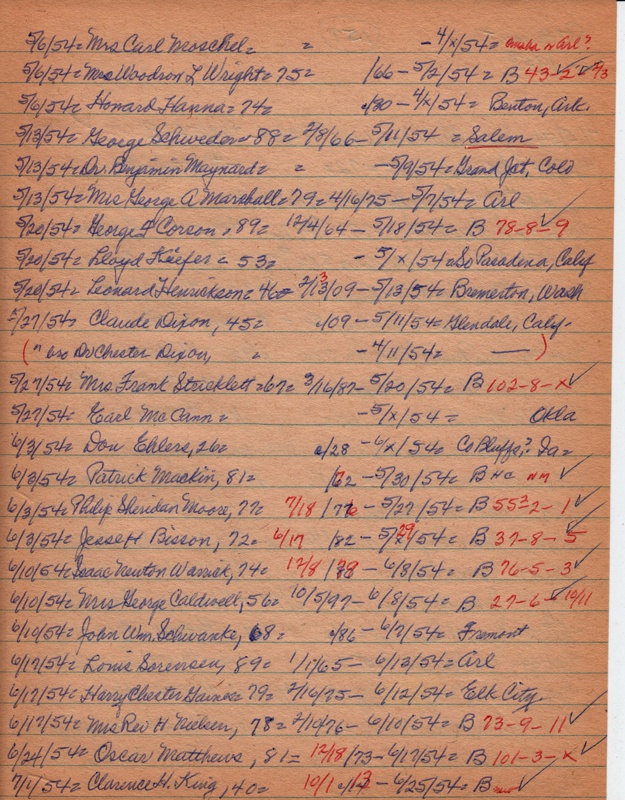 5/6/54= Mrs Carl Moschel= = -4/x/54= Omaha or Arl?
5/6/54= Mrs Woodson L Wright= 75= /66-5/2/54= B 43-2
5/6/54= Howard Hanna= 74= c/80-4/x/54= Benton, Ark.
5/13/54= George Schweder= 88= 2/8/66-5/11/54= Salem
5/13/54= Dr. Benjamin Maynard= = -5/9/54= Grand Jct, Colo
5/13/54= Mrs George A Marshall= 79= 4/16/75-5/7/54= Arl
5/20/54= George F Corson, 89= 12/4/64-5/18/54= B 78-8-9
5/20/54= Lloyd Kiefer= 53= -5/x/54= So Pasadena, Calif
5/20/54= Leonard Henrikson= 2/13/09-5/13/54= Bremerton, Wash
5/27/54= Claude Dixon, 45= c/09-5/11/54= Glendale, Calif.
(" bro Dr Chester Dixon, = -4/11/54= — )
5/27/54= Mrs. Frank Stricklett= 67= 3/16/87-5/20/54= B 102-8-x
5/27/54= Earl McCann= -5/x/54= Okla
6/3/54= Don Ehlers, 26= c/28-6/x/54= Co Bluffs,? Ia=
6/3/54= Patrick Mackin, 81= -5/30/54= B HC NM
6/3/54= Philip Sheridan Moore, 77= 7/18/76-5/27/54= B 55-2-1
6/3/54= Jesse H Bisson, 72= 6/17/82-5/29/54= B 37-8-5
6/10/54= Isaac Newton Warrick, 74= 12/8/79-6/8/54= B 76-5-3
6/10/54= Mrs George Caldwell, 56= 10/5/97-6/8/54= B 27-6-10/11
6/10/54= John Wm. Schwanke, 68= c/86-6/7/54= Fremont
6/17/54= Louis Sorensen, 89= 1/1/65-6/13/54= Arl
6/17/54= Harry Chester Gaines= 79= 2/16/75-6/12/54= Elk City
6/17/54= Mrs Rev H Nielsen, 78= 2/10/76-6/10/54= B 73-9-11
6/24/54= Oscar Matthews, 81= 12/18/73-6/17/54= B 101-3-x
7/1/54= Clarence H. King, 40= 10/1 /13-6/25/54= B